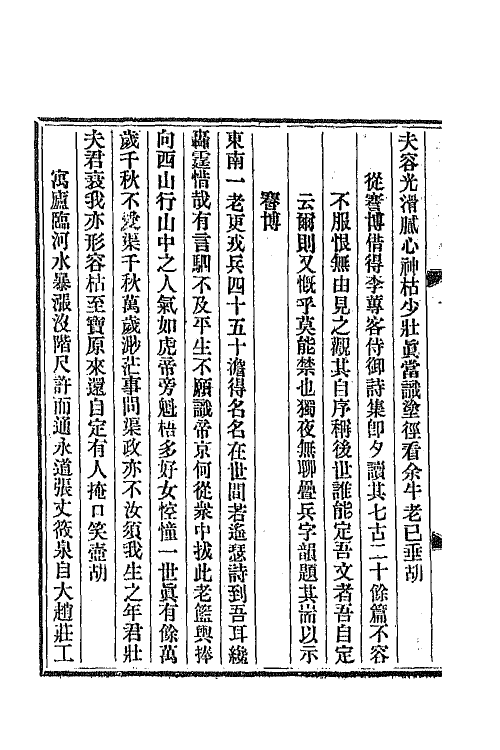 夫容光滑膩心神枯少壯眞當識塗徑看余牛老已垂胡
從謇博借得李蓴客侍御詩集卽夕讀其七古二十餘篇不容
不服恨無由見之觀其自序稱後世誰能定吾文者吾自定
云爾則又慨乎莫能禁也獨夜無聊疊兵字韻題其耑以示
謇博
東南一老更戎兵四十五十澹得名名在世間若遙瑟詩到吾耳纔
轟霆惜哉有言駟不及平生不願識帝京何從衆中拔此老籃輿捧
向西山行山中之人氣如虎帝旁魁梧多好女悾憧一世眞有餘萬
歲千秋不愛渠千秋萬歲渺茫事問渠政亦不汝須我生之年君壯
夫君衰我亦形容枯至寶原來還自定有人掩口笑壺胡
寓廬臨河水暴漲沒階尺許而通永道張丈筱泉自大趙莊工